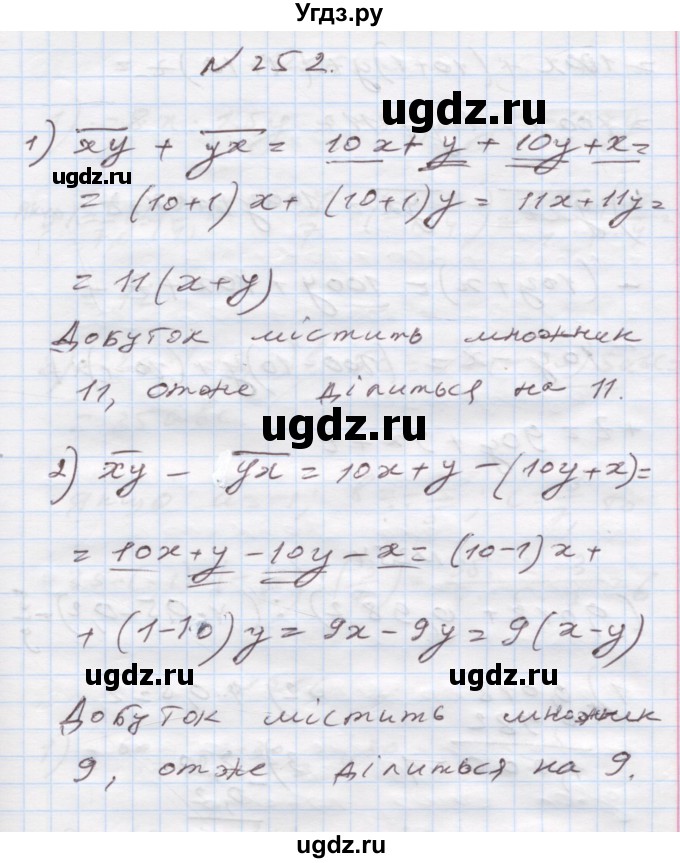 Угдз.ру
N 252.
ugdz.ru
1) xy + yx = 10x + y + 10y + x =
ugdz.ru
= (10+1)x + (10+1)y = 11x + 11y =
= 11(x+y)
ugdz.ru
Добуток містить множник
11, отже ділиться на 11.
ugdz.ru
2) xy - yx = 10x + y - (10y + x) =
ugdz.ru
= 10x + y - 10y - x = (10-1)x +
+ (1-10)y = 9x - 9y = 9(x-y)
ugdz.ru ugdz.ru
Добуток містить множник
9, отже ділиться на 9.
ugdz.ru